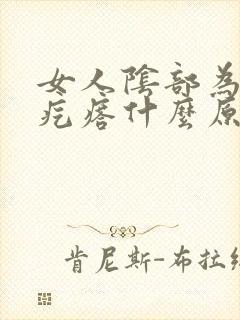 女人陰部為
疙瘩什麼原
肯尼斯-布拉